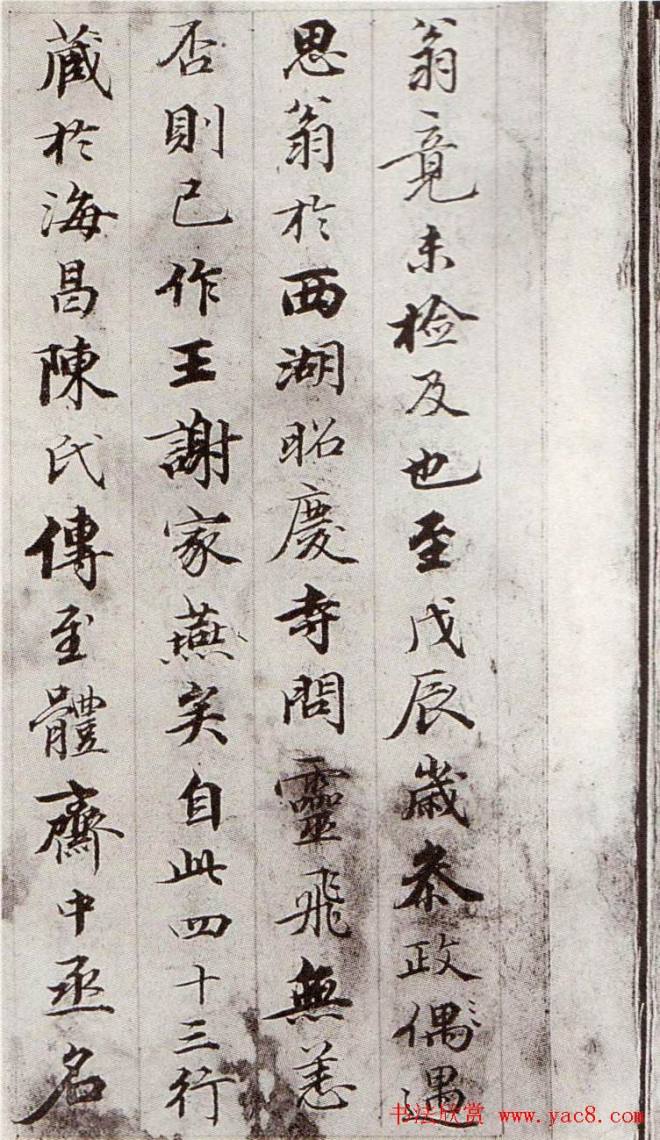 翁竟未檢及也至戊辰歲叅政偶遇
思翁於西湖昭慶寺問靈飛無恙
否則已作王謝家燕矣自此四十三行
藏於海昌陳氏傳至體齋中丞名
书法欣赏 www.yac8.com